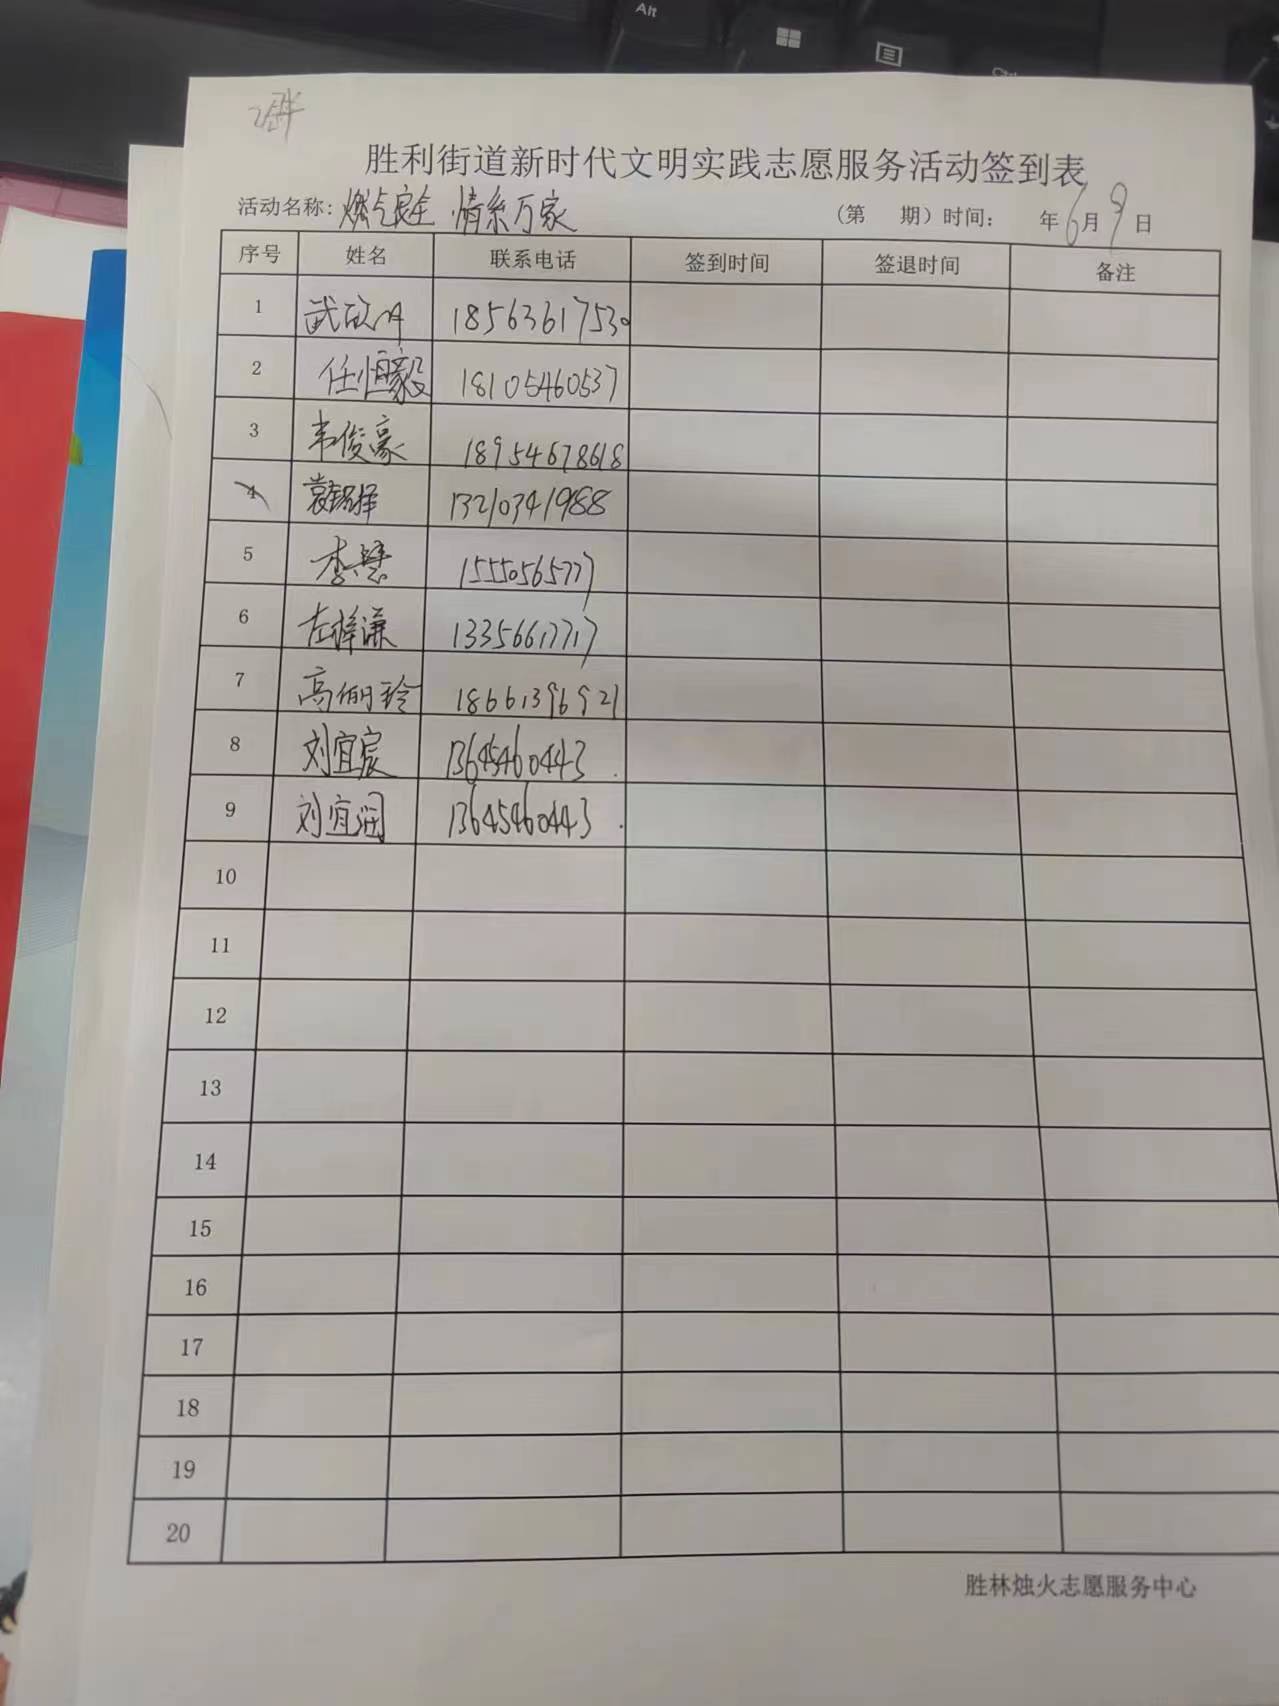 Alt
胜利街道新时代文明实践志愿服务活动签到表
活动名称: 燃气安全 情系万家 (第 期) 时间: 年6月9日
序号 姓名 联系电话 签到时间 签退时间 备注
1 武 18563617530
2 任恒毅 18105460537
3 韦俊豪 18954678618
4 袁 泽 13210341988
5 李慧 15550565777
6 左梓谦 13356617717
7 高俪玲 18661396921
8 刘宜宸 13645460443
9 刘宜润 13645460443
10
11
12
13
14
15
16
17
18
19
20
胜林烛火志愿服务中心